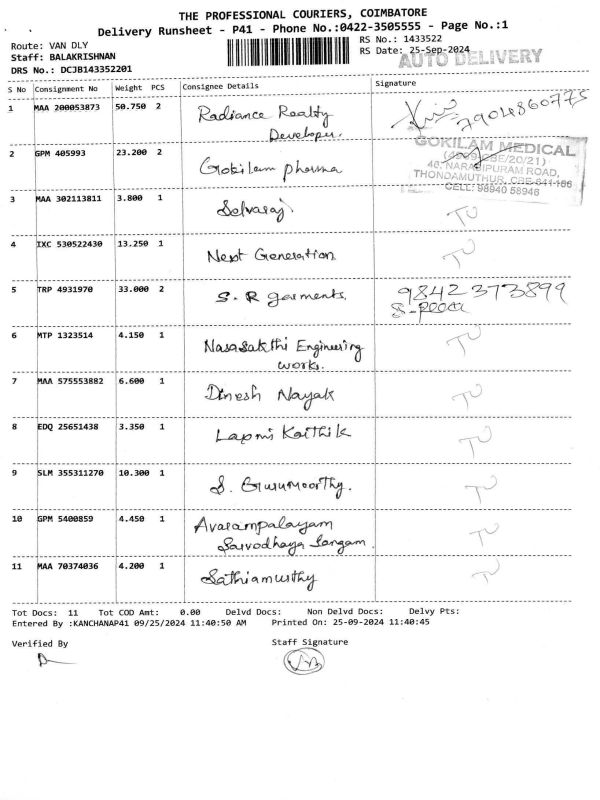 THE PROFESSIONAL COURIERS, COIMBATORE
Delivery Runsheet - P41 - Phone No.:0422-3505555 - Page No.:1
Route: VAN DLY
RS No.: 1433522
Staff: BALAKRISHNAN
RS Date: 25-Sep-2024
AUTO DELIVERY
DRS No.: DCJB143352201
S No Consignment No Weight PCS Consignee Details Signature
1 MAA 200053873 50.750 2 Radiance Realty 7904860775
Developer.
2 GPM 405993 23.200 2 Gokilam pharma
GOKILAM MEDICAL
46, NARASIPURAM ROAD,
THONDAMUTHUR, CBE-641 106
CELL: 98940 58946
3 MAA 302113811 3.800 1 Selvaraj TU
4 IXC 530522430 13.250 1 Next Generation TU
5 TRP 4931970 33.000 2 S. R garments. 9842373899
6 MTP 1323514 4.150 1 Nasasakthi Engineering TU
works.
7 MAA 575553882 6.600 1 Dinesh Nayak TU
8 EDQ 25651438 3.350 1 Laxmi Karthik TU
9 SLM 355311270 10.300 1 S. Gurumoorthy. TU
10 GPM 5400859 4.450 1 Avarampalayam TU
Sarvodhaya Sangam.
11 MAA 70374036 4.200 1 Sathiamurthy TU
Tot Docs: 11 Tot COD Amt: 0.00 Delvd Docs: Non Delvd Docs: Delvy Pts:
Entered By :KANCHANAP41 09/25/2024 11:40:50 AM Printed On: 25-09-2024 11:40:45
Verified By Staff Signature